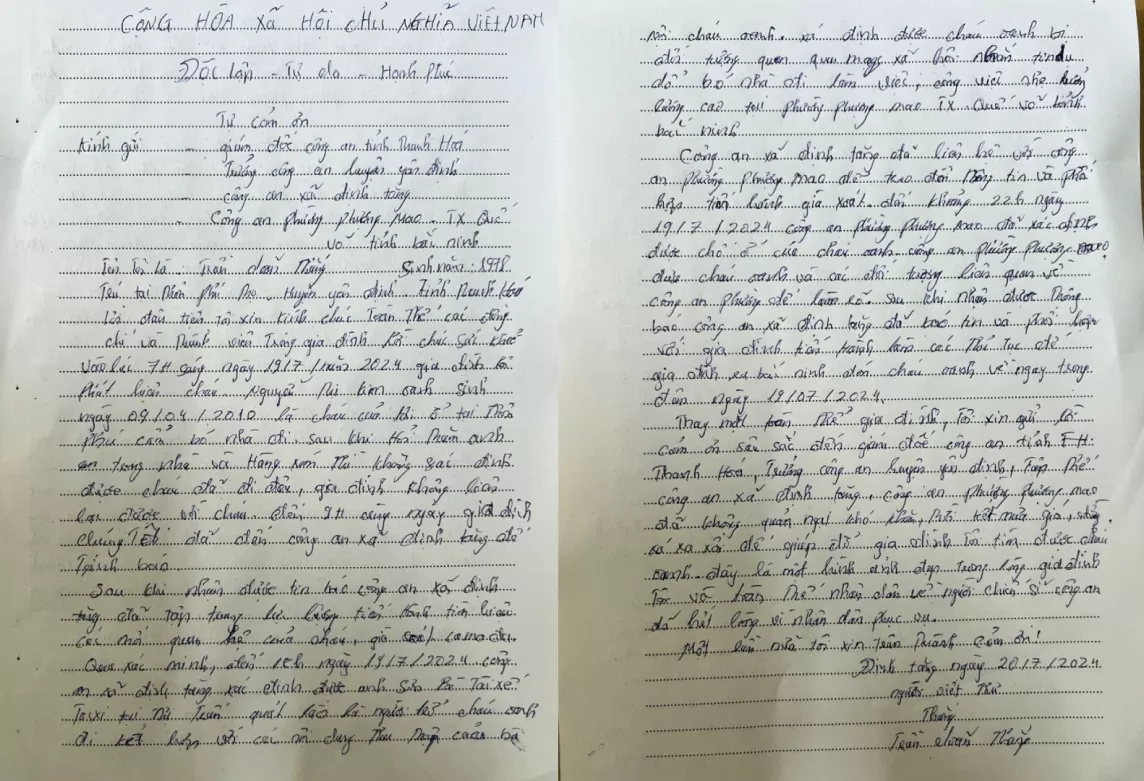 CỘNG HÒA XÃ HỘI CHỦ NGHĨA VIỆT NAM
Độc lập - Tự do - Hạnh phúc
Tự cảm ơn
Kính gửi - giám đốc công an tỉnh Thanh Hoá
- Trưởng công an huyện yên định
- công an xã định tăng
- Công an phường phượng mao - TX Quế
võ tỉnh bắc ninh
Tên Tôi là Trần doãn Thắng Sinh năm: 1998
Trú tại Thôn Phú Thọ, Huyện yên định Tỉnh Thanh Hoá
Lời đầu tiên Tôi xin kính chúc Toàn Thể các đồng
chí và Thành viên Trong gia đình lời chúc sức khoẻ
Vào lúc 7H sáng ngày 19/7/năm 2024 gia đình tôi
Phát hiện cháu Nguyễn Thị kim oanh Sinh
ngày 09/04/2010 là cháu của tôi ở tại Thôn
Phú cẩm bỏ nhà đi. sau khi
em Trong nhà và Hàng xóm Thì không xác định
được cháu đã đi đâu, gia đình không liên
lạc được với cháu. đến 9H cùng ngày gia đình
chúng Tôi đã đến công an xã định tăng để
Trình báo
Sau khi nhận được tin báo công an xã định
tăng đã tập trung lực lượng tiến hành tìm hiểu
các mối quan hệ của cháu, camera
Qua xác minh, đến ngày 19/7/2024 công
an xã định tăng xác định được anh Tài xế
Taxi là người chở cháu oanh
đi với các nội dung
cháu oanh. xác định được cháu oanh bị
đối tượng quen qua mạng xã hội nhắn tin dụ
dỗ bỏ nhà đi làm việc, công việc nhẹ
lương cao tại phường phượng mao TX Quế võ tỉnh
bắc ninh
Công an xã định tăng đã liên hệ với công
an phường phượng mao để trao đổi Thông tin và phối
hợp tiến hành rà xoát. đến khoảng 22h ngày
19/7/2024 công an phường phượng mao đã xác định
được chỗ ở của cháu oanh. công an phường phượng mao
đưa cháu oanh và các đối tượng liên quan về
công an phường để làm rõ. sau khi nhận được Thông
báo công an xã định tăng đã báo tin và phối hợp
với gia đình tiến hành làm các Thủ Tục để
gia đình ra bắc ninh đón cháu oanh về ngay trong
đêm ngày 19/07/2024.
Thay mặt toàn Thể gia đình, Tôi xin gửi lời
cảm ơn sâu sắc đến giám đốc công an tỉnh TH.
Thanh Hoá, Trưởng công an huyện yên định, Tập Thể
công an xã định tăng, công an phường phượng mao
đã không quản ngại khó khăn,
xá xa xôi để giúp đỡ gia đình Tôi tìm được cháu
oanh. đây là một hình ảnh đẹp trong lòng gia đình
Tôi và toàn Thể nhân dân về người chiến sĩ công an
đã hết lòng vì nhân dân phục vụ.
Một lần nữa tôi xin trân Thành cảm ơn!
Định tăng ngày 20/7/2024
người viết Thư
Thắng
Trần doãn Thắng